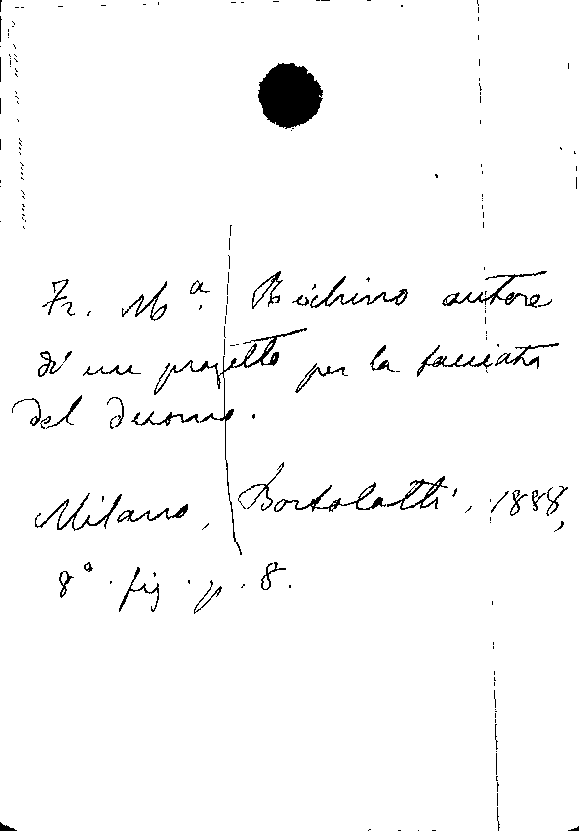 Fr. Mª. Richino autore
di un progetto per la facciata
del duomo.
Milano, Bortolotti, 1888,
8° fig. p. 8.